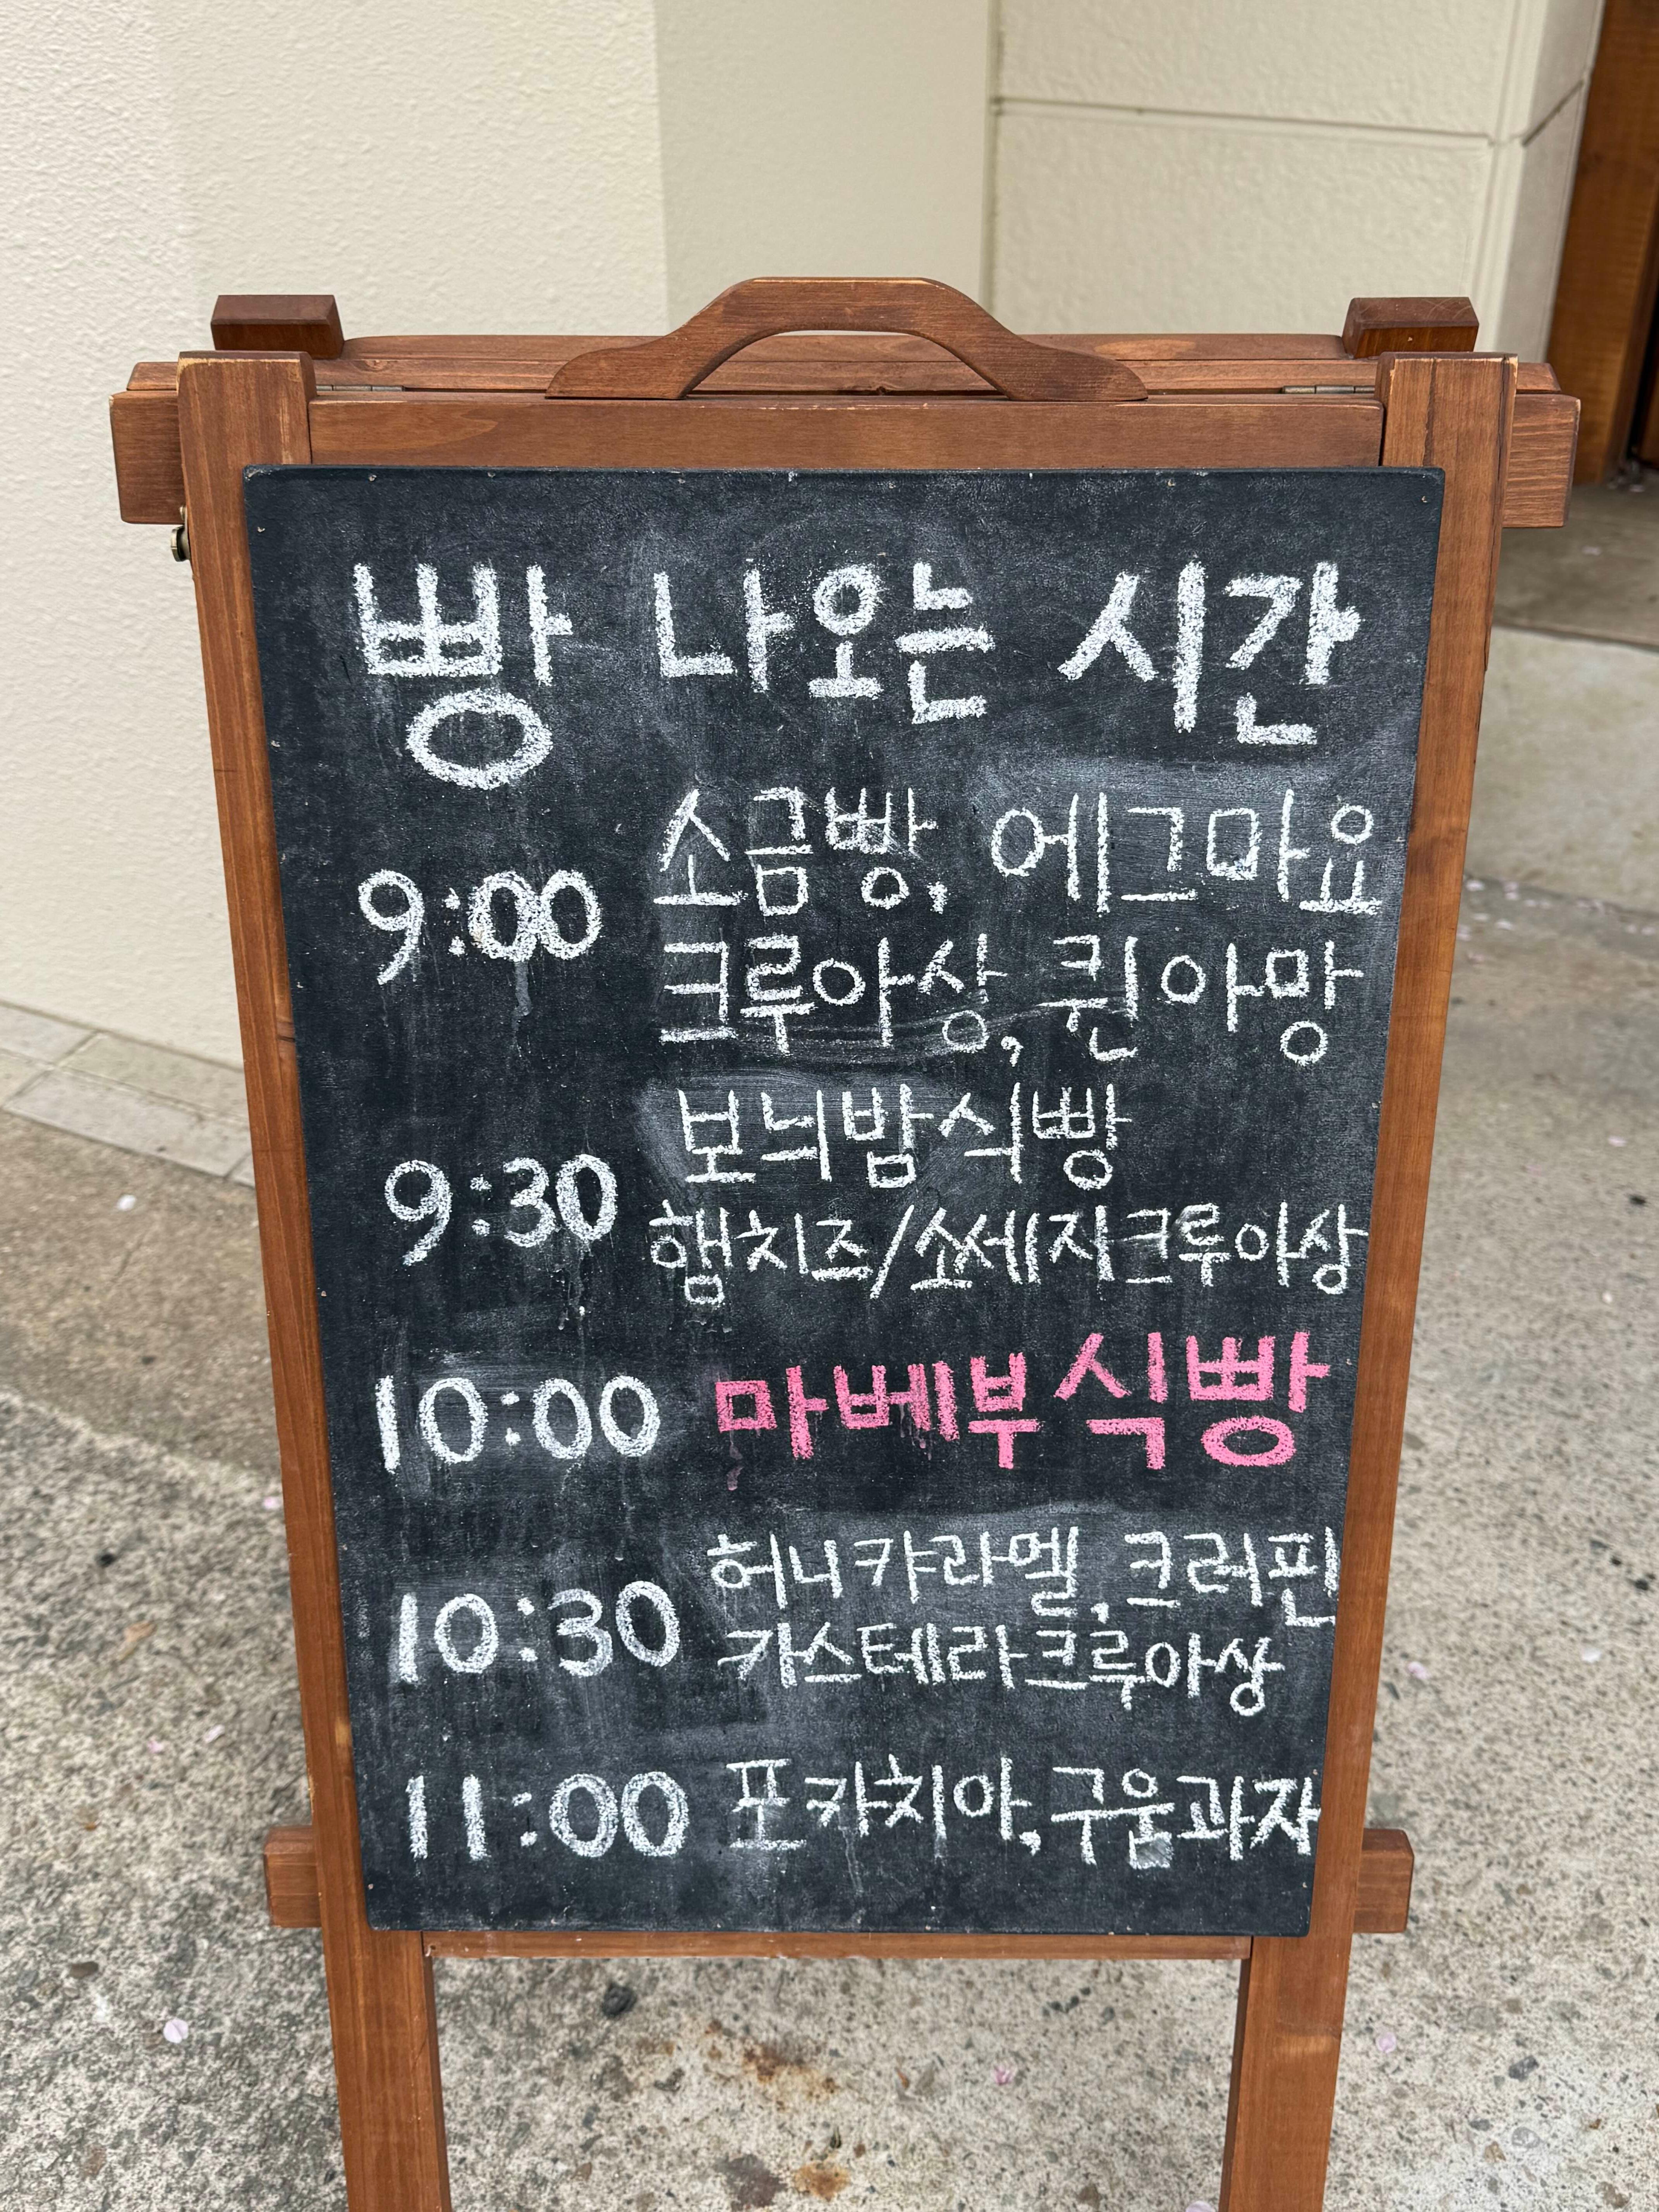 빵 나오는 시간
9:00 소금빵, 에그마요
크루아상, 퀸아망
9:30 보늬밤식빵
햄치즈/소세지크루아상
10:00 마베부식빵
10:30 허니캬라멜, 크러핀
카스테라크루아상
11:00 포카치아, 구움과자